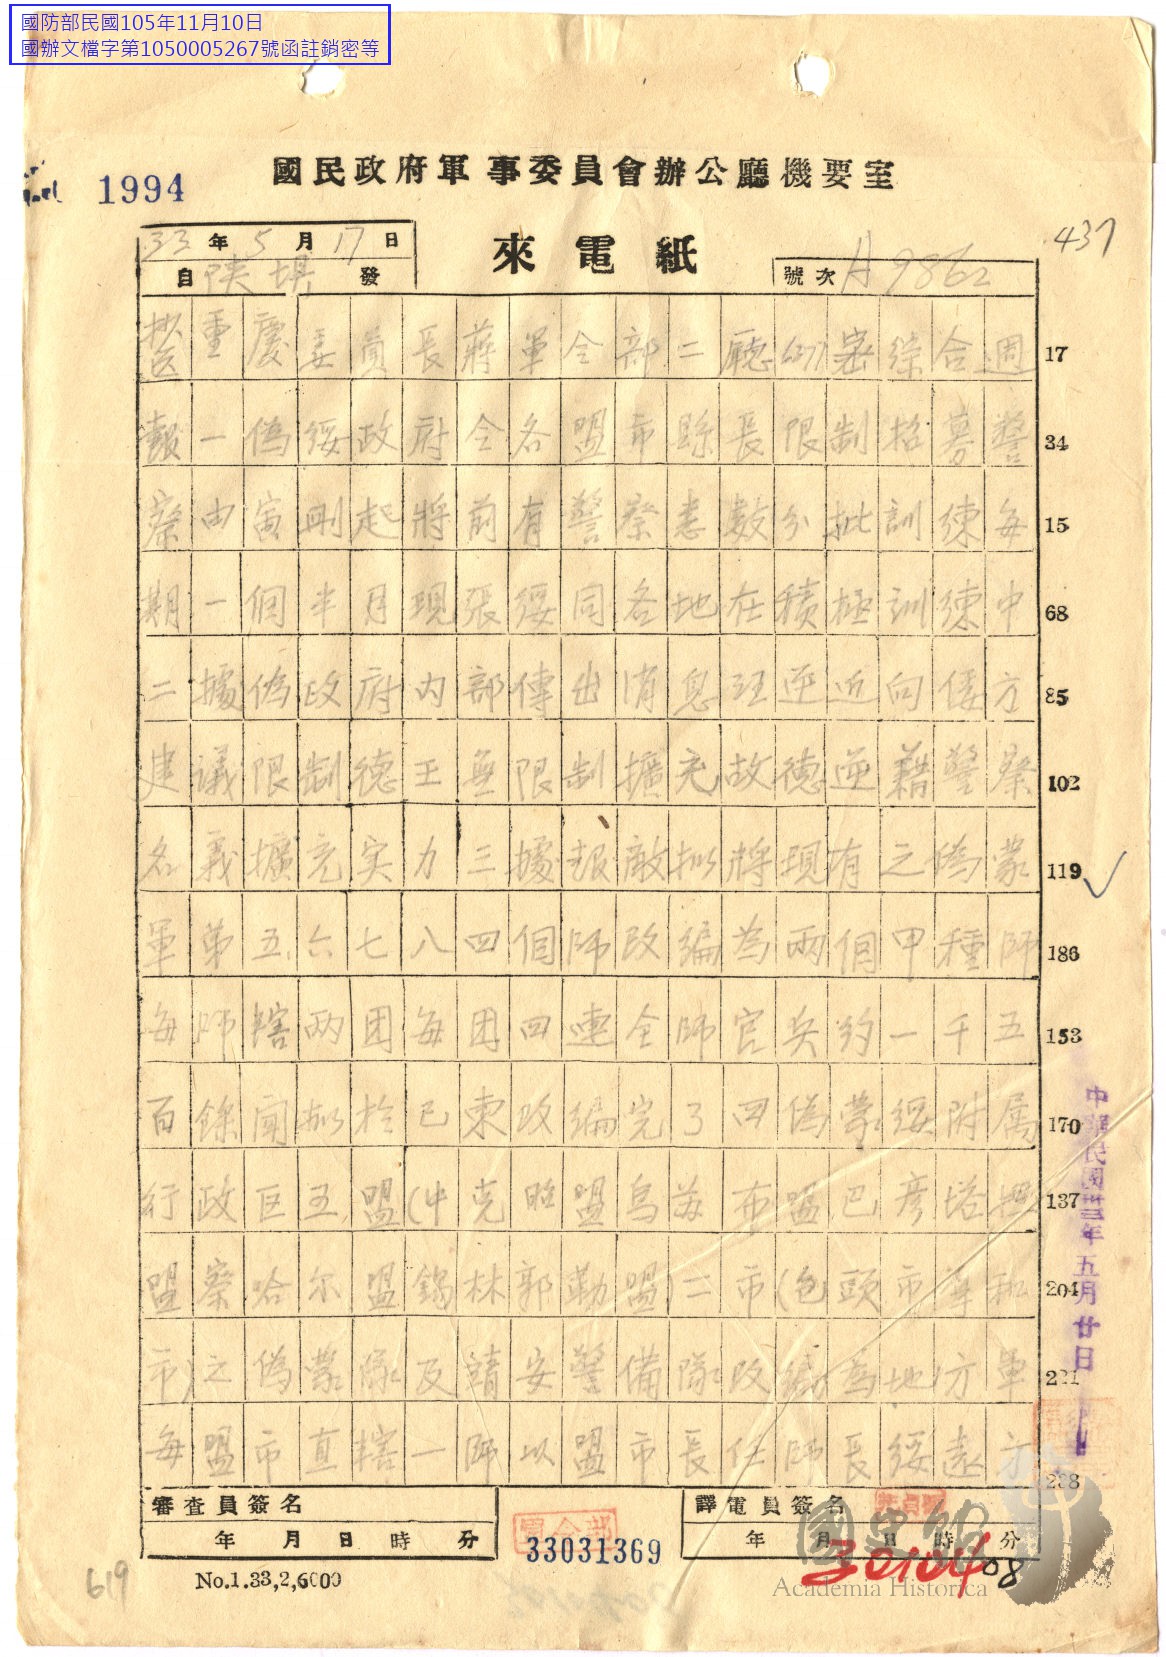 國防部民國105年11月10日
國辦文檔字第1050005267號函註銷密等
1994
國民政府軍事委員會辦公廳機要室
33年5月17日
來電紙
437
自陝壩發
號次 9862
重慶委員長蔣軍令部二廳密綜合週 17
報一偽綏政府令各盟市縣長限制招募警 34
察由寅刪起將前有警察悉數分批訓練每 15
期一個半月現張綏同各地在積極訓練中 68
二據偽政府內部傳出消息逆近向倭方 85
建議限制德王無限制擴充故德逆藉警察 102
名義擴充实力三據报敵拟將現有之偽蒙 119
軍第五六七八四個師改編為兩個甲種師 186
每師轄兩团每团四連全師官兵約一千五 153
百餘聞拟於已東改編完了四偽蒙綏附属 170
行政区五盟(克昭盟烏布盟巴彥塔盟 137
盟察哈尔盟錫林郭勒盟)二市(包頭市和 204
市)之偽蒙隊及靖安警備隊改編為地方軍 221
每盟市直轄一師以盟市長任師長綏遠 238
中華民國卅三年五月廿日
審查員簽名
年 月 日 時 分
軍令部
33031369
譯電員簽名
年 月 日 時 分
3010408
國史館
Academia Historica
619
No.1.33,2,6000